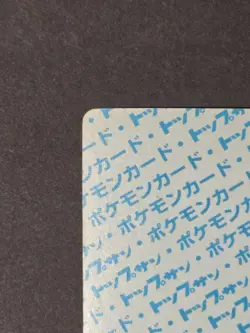 カード・トップサン
トップサン・ポケモンカード
・ポケモンカード・
ポケモンカード・トップサン
トップサン・ポケモン
・トップサン・